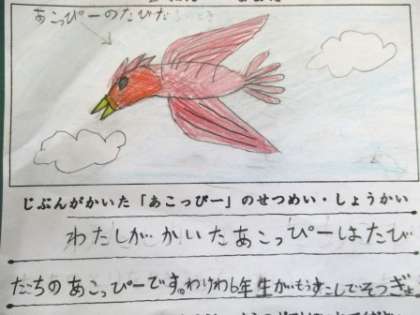 あこっぴーのたびだ
じぶんがかいた「あこっぴー」のせつめい・しょうかい
わたしがかいたあこっぴーはたび
だちのあこっぴーです。わけわ6年生がもうすこしでそつぎょ